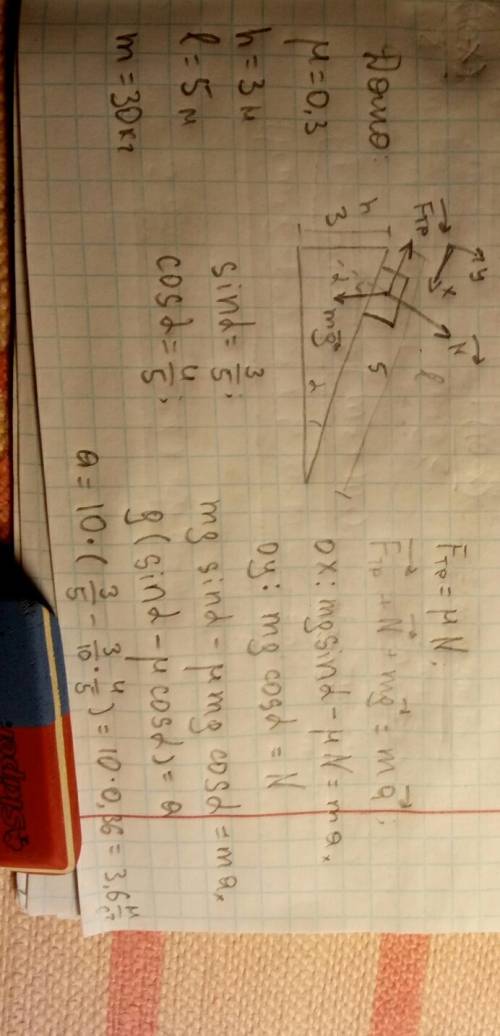 Дано:
μ = 0,3
h = 3 м
l = 5 м
m = 30 кг
y
x
N
Fтр
mg
h
3
5
l
α
α
sin α = 3/5;
cos α = 4/5;
Fтр = μN;
Fтр + N + mg = ma;
ox: mg sin α - μN = max
oy: mg cos α = N
mg sin α - μ mg cos α = max
g(sin α - μ cos α) = a
a = 10·(3/5 - 3/10·4/5) = 10·0,36 = 3,6 м/с²